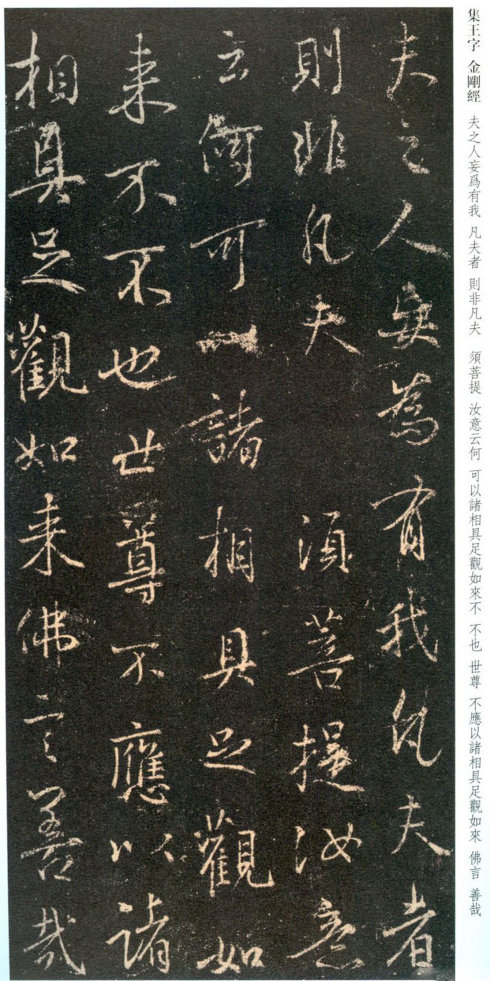 集王字 金剛經 夫之人妄爲有我 凡夫者 則非凡夫 須菩提 汝意云何 可以諸相具足觀如來不 不也 世尊 不應以諸相具足觀如來 佛言 善哉
夫之人妄為有我凡夫者
則非凡夫 須菩提汝意
云何可以諸相具足觀如
来不不也世尊不應以諸
相具足觀如来佛言善哉